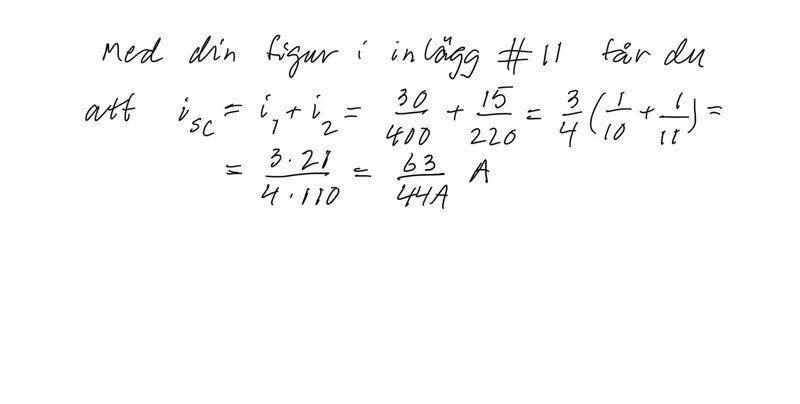 Med din figur i inlägg #11 får du
att i_sc = i_1 + i_2 = 30/400 + 15/220 = 3/4 (1/10 + 1/11) =
= 3·21/4·110 = 63/44A A